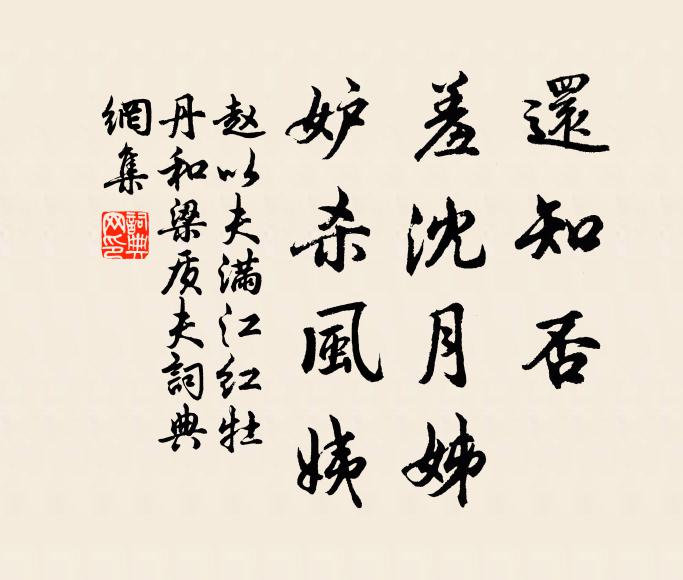 還知否
羞沈月姊
妒杀風姨
赵以夫满江红牡
丹和梁质夫詞典
網集
詞典
网印